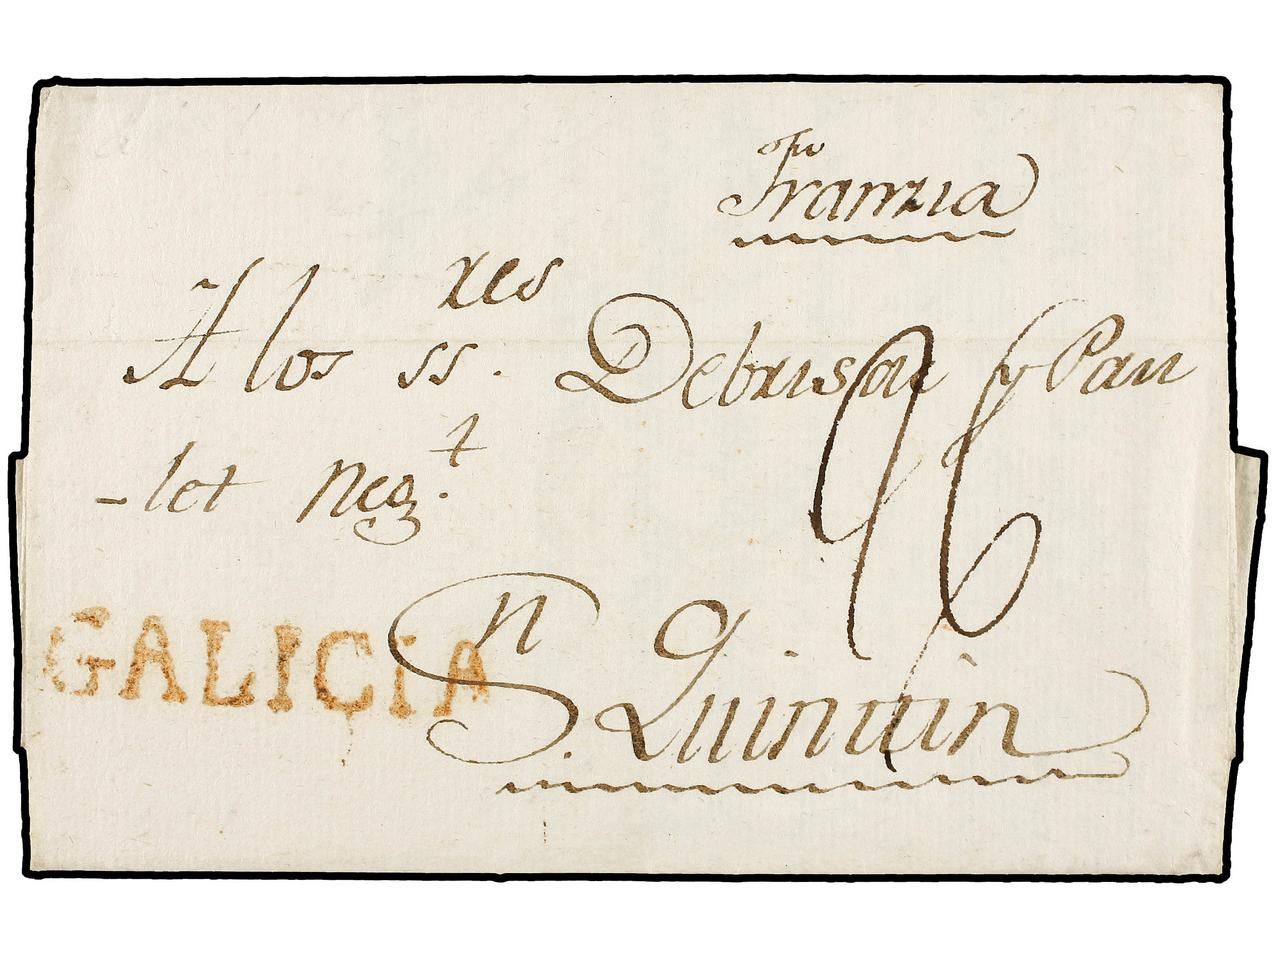 Franzia
A los ss.res Debrisai y Pau
-let Neg.t
GALICIA
S.n Quintin
26